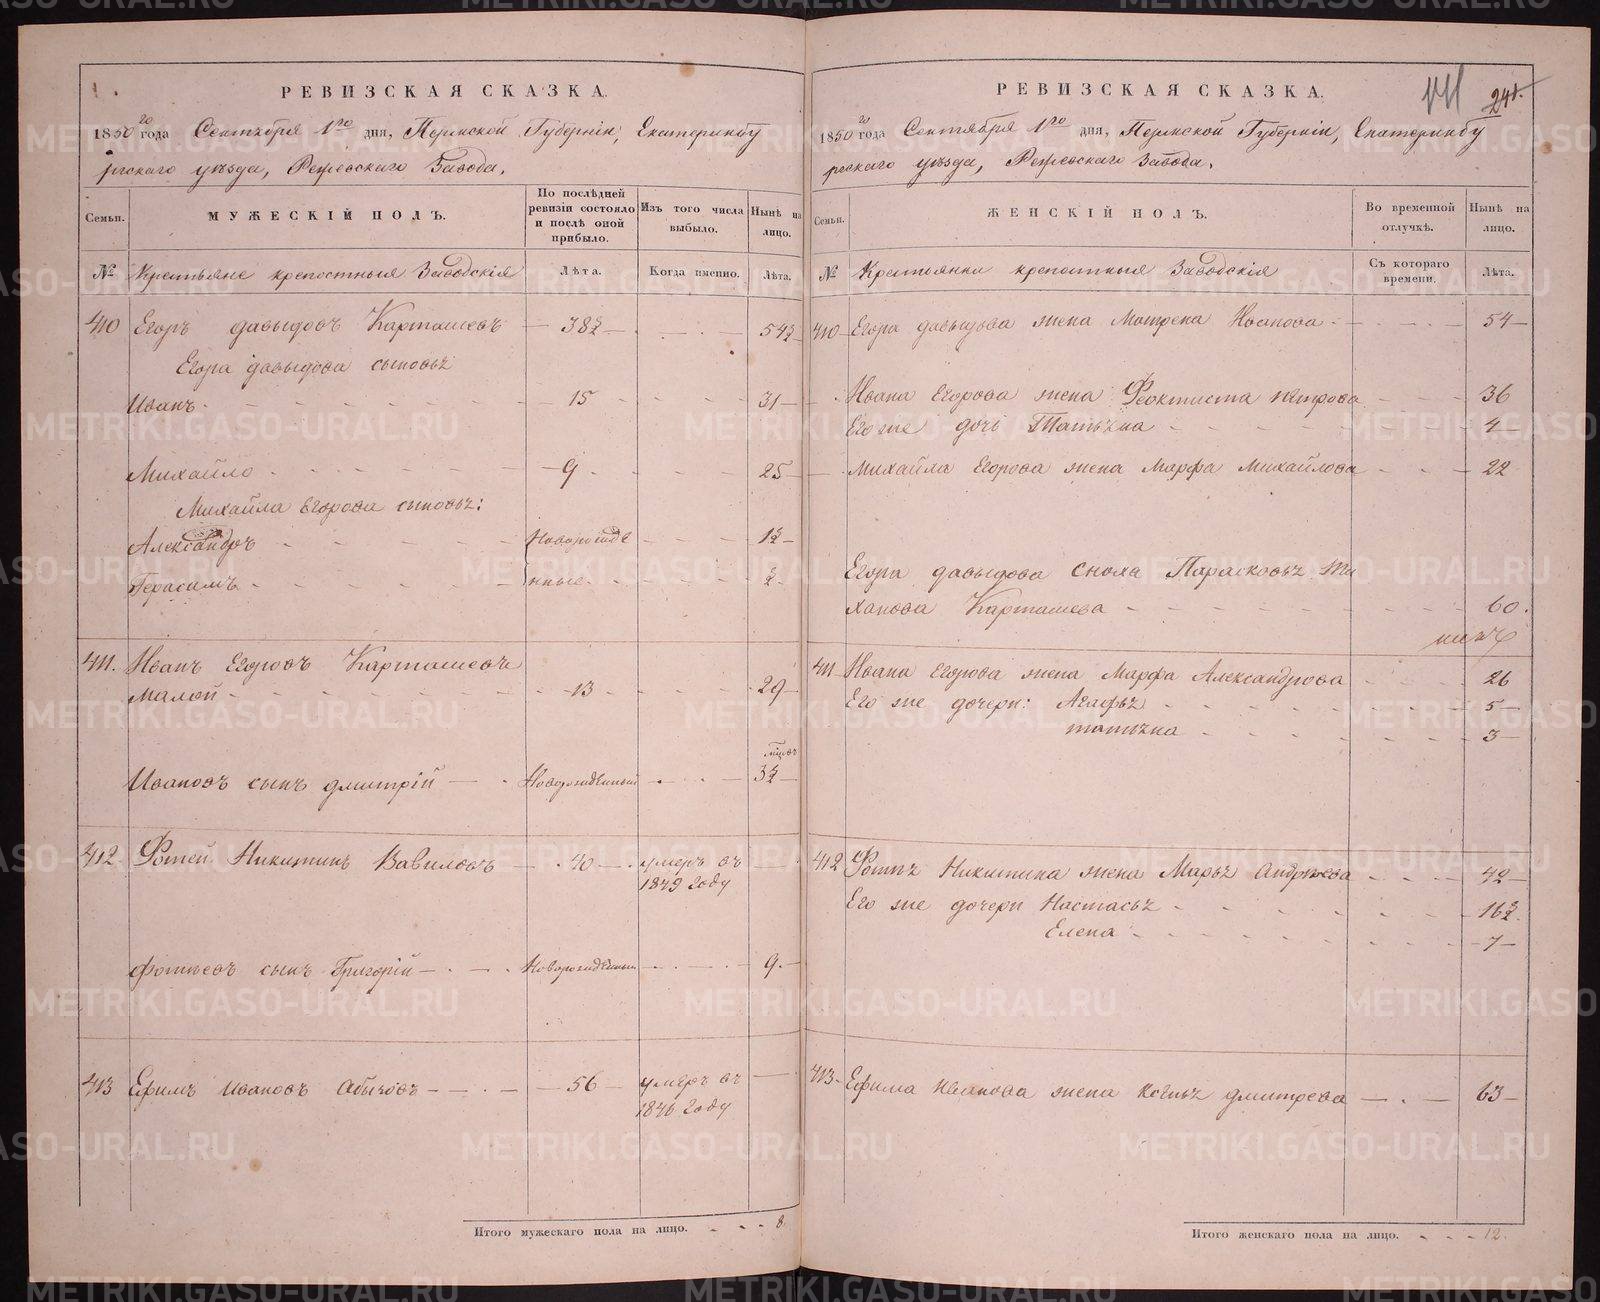 РЕВИЗСКАЯ СКАЗКА.
1850го года Сентября 1го дня, Пермской Губернiи, Екатеринбу
ргскаго уѣзда, Режевскаго Завода.
Семьи.
МУЖЕСКIЙ ПОЛЪ.
По послѣдней ревизiи состояло и послѣ оной прибыло.
Изъ того числа выбыло.
Нынѣ на лицо.
№
Крестьяне крепостныя Заводскiя
Лѣта.
Когда именно.
Лѣта.
410 Егоръ давыдовъ Карташевъ 38½ 54½
Егора давыдова сыновья
Иванъ 15 31
Михайло 9 25
Михайла Егорова сыновья:
Александръ Новорожде 1½
Герасимъ нные ½
411. Иванъ Егоровъ Карташевъ
малой 13 29
Ивановъ сынъ дмитрiй Новорожденный 3½
412 Фотей Никитинъ Вавиловъ 40 умеръ въ
1849 году
фотѣевъ сынъ Григорiй Новорожденный 9
413 Ефимъ Ивановъ 56 умеръ въ
1846 году
Итого мужескаго пола на лицо. 8.
РЕВИЗСКАЯ СКАЗКА.
241.
1850го года Сентября 1го дня, Пермской Губернiи, Екатеринбу
ргскаго уѣзда, Режевскаго Завода.
Семьи.
ЖЕНСКIЙ ПОЛЪ.
Во временной отлучкѣ.
Нынѣ на лицо.
№
Крестьянки крепостныя Заводскiя
Съ котораго времени.
Лѣта.
410 Егора давыдова жена Матрена Иванова 54
Ивана Егорова жена Феоктиста петрова 36
Его же дочь Татьяна 4
Михайла Егорова жена Марфа Михайлова 22
Егора давыдова сноха Парасковья
Карташева 60.
411 Ивана Егорова жена Марфа Александрова 26
Его же дочери: Агафья 5
татьяна 3
412 Фотѣя Никитина жена Марья андрѣева 42
Его же дочери Настасья 16½
Елена 7
413 Ефима Иванова жена дмитрева 63
Итого женскаго пола на лицо. 12.
METRIKI.GASO-URAL.RU